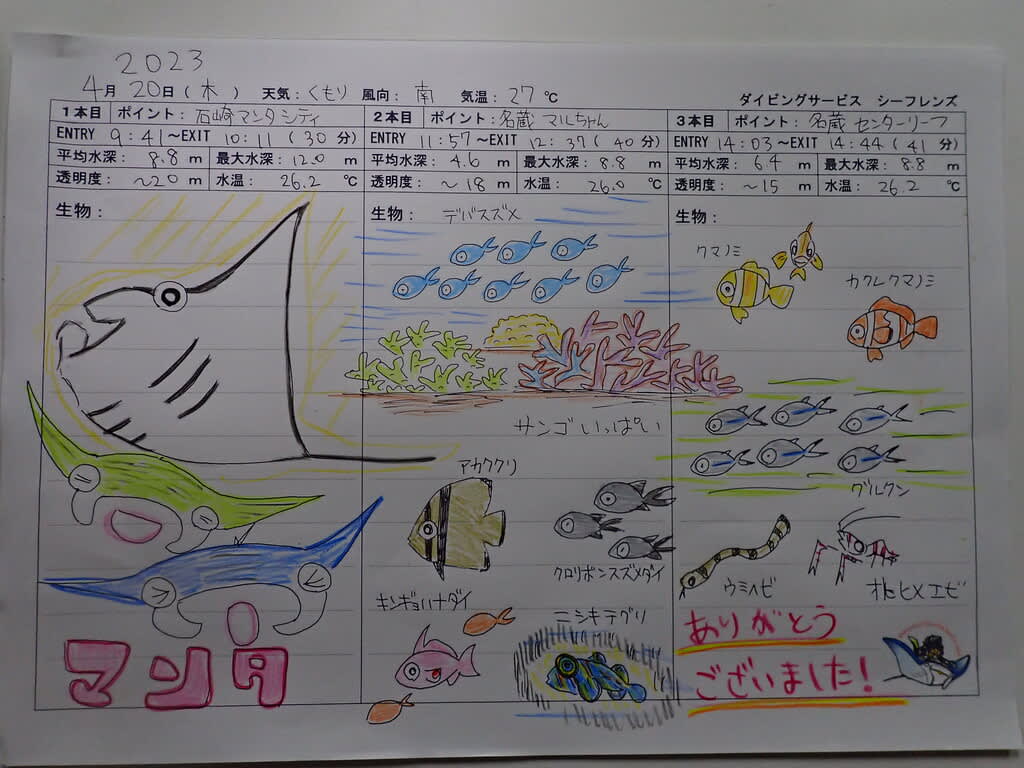 2023
4月 20日(木) 天気：くもり 風向：南 気温：27℃
ダイビングサービス シーフレンズ
1本目 ポイント：石崎マンタシティ
ENTRY 9:41～EXIT 10:11 (30分)
平均水深：8.8 m 最大水深：12.0 m
透明度：～20 m 水温：26.2 ℃
生物：
マンタ
2本目 ポイント：名蔵 マルちゃん
ENTRY 11:57～EXIT 12:37 (40分)
平均水深：4.6 m 最大水深：8.8 m
透明度：～18 m 水温：26.0 ℃
生物：
デバスズメ
サンゴいっぱい
アカククリ
クロリボンスズメダイ
キンギョハナダイ
ニシキテグリ
3本目 ポイント：名蔵 センターリーフ
ENTRY 14:03～EXIT 14:44 (41分)
平均水深：6.4 m 最大水深：8.8 m
透明度：～15 m 水温：26.2 ℃
生物：
クマノミ
カクレクマノミ
グルクン
ウミヘビ
オトヒメエビ
ありがとう
ございました!